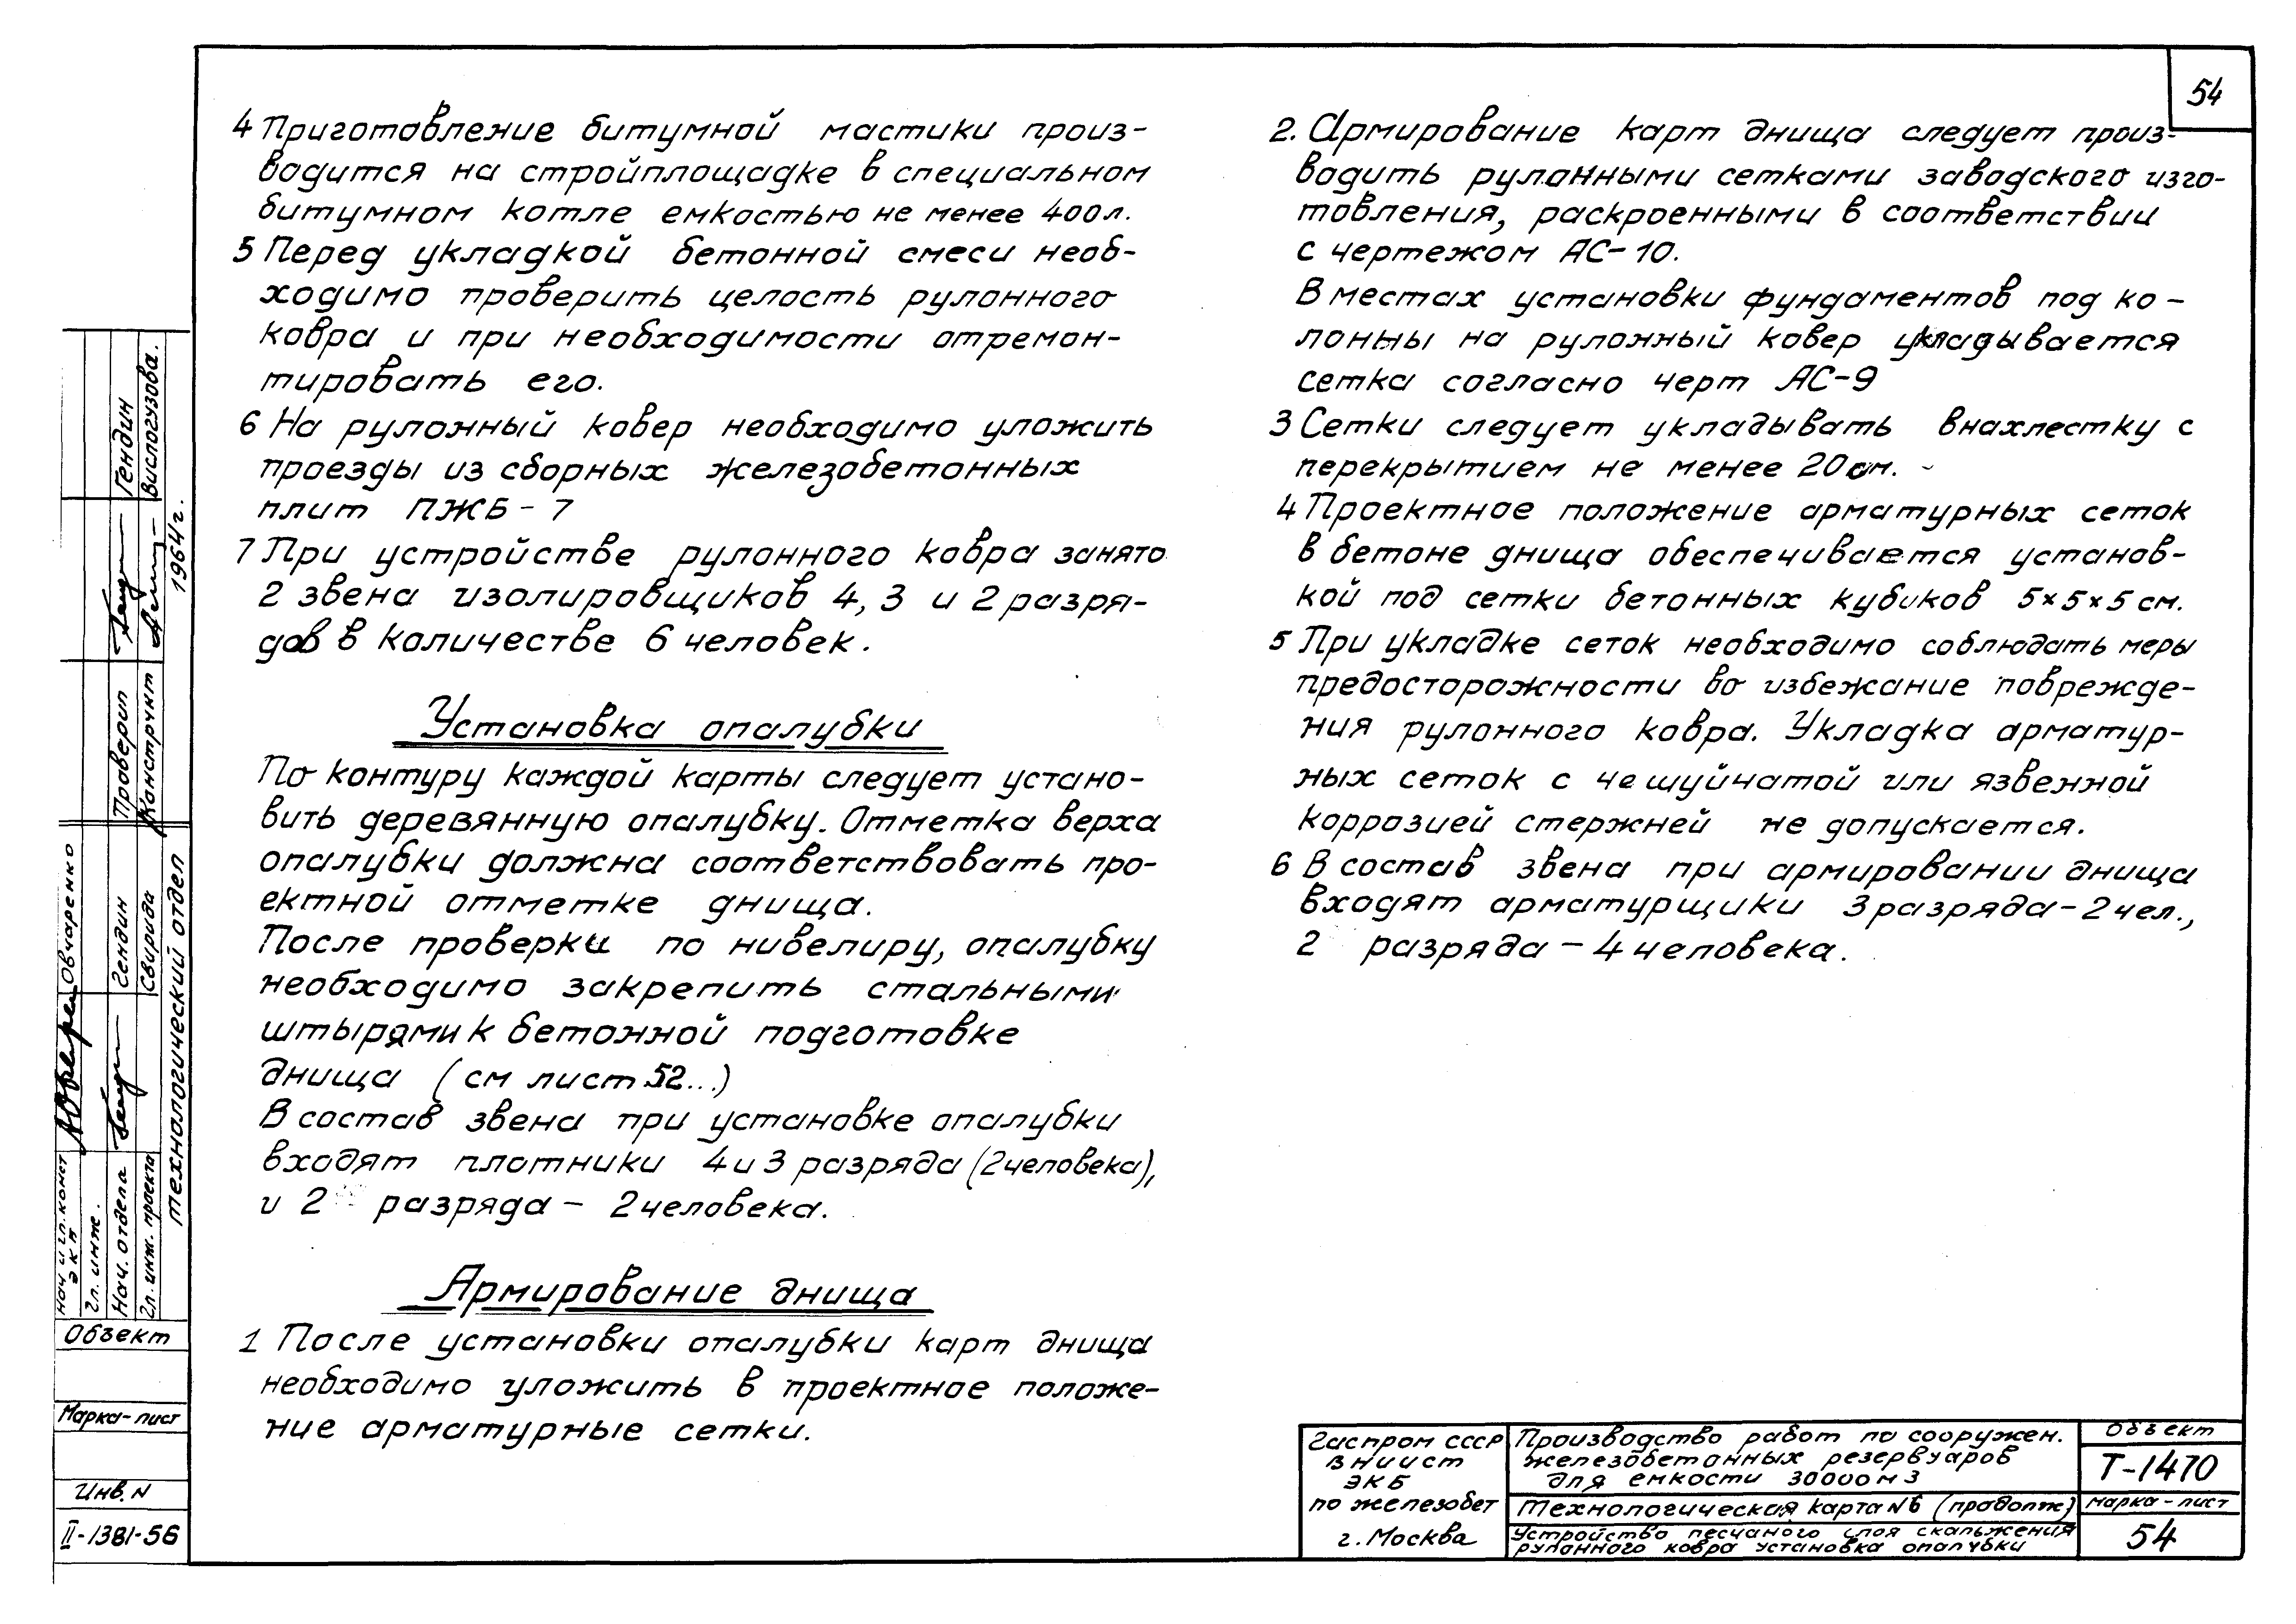 54
4 Приготовление битумной мастики произ-
водится на стройплощадке в специальном
битумном котле емкостью не менее 400л.
5 Перед укладкой бетонной смеси необ-
ходимо проверить целость рулонного
ковра и при необходимости отремон-
тировать его.
6 На рулонный ковер необходимо уложить
проезды из сборных железобетонных
плит ПЖБ-7
7 При устройстве рулонного ковра занято
2 звена изолировщиков 4, 3 и 2 разря-
дов в количестве 6 человек.
Установка опалубки
По контуру каждой карты следует устано-
вить деревянную опалубку. Отметка верха
опалубки должна соответствовать про-
ектной отметке днища.
После проверки по нивелиру, опалубку
необходимо закрепить стальными
штырями к бетонной подготовке
днища (см лист 52...)
В состав звена при установке опалубки
входят плотники 4 и 3 разряда (2 человека),
и 2 разряда - 2 человека.
Армирование днища
1 После установки опалубки карт днища
необходимо уложить в проектное положе-
ние арматурные сетки.
2. Армирование карт днища следует произ-
водить рулонными сетками заводского изго-
товления, раскроенными в соответствии
с чертежом АС-10.
В местах установки фундаментов под ко-
лонны на рулонный ковер укладывается
сетка согласно черт АС-9
3 Сетки следует укладывать внахлестку с
перекрытием не менее 20см.
4 Проектное положение арматурных сеток
в бетоне днища обеспечивается установ-
кой под сетки бетонных кубиков 5×5×5 см.
5 При укладке сеток необходимо соблюдать меры
предосторожности во избежание поврежде-
ния рулонного ковра. Укладка арматур-
ных сеток с чешуйчатой или язвенной
коррозией стержней не допускается.
6 В состав звена при армировании днища
входят арматурщики 3 разряда - 2 чел.,
2 разряда - 4 человека.
Газпром СССР
ВНИИСТ
ЭКБ
по железобет
г. Москва
Производство работ по сооружен.
железобетонных резервуаров
для емкости 30000 м3
Технологическая карта N6 (продолж)
Устройство песчаного слоя скольжения
рулонного ковра установка опалубки
Объект
Т-1470
марка-лист
54
Гендин
Вислогузова.
1964г.
Проверил
Конструкт
Овчаренко
Гендин
Свирида
технологический отдел
Нач. и гл. конст
ЭКБ
Гл. инж.
Нач. отдела
Гл. инж. проекта
Объект
Марка-лист
Инв. N
II-1381-56